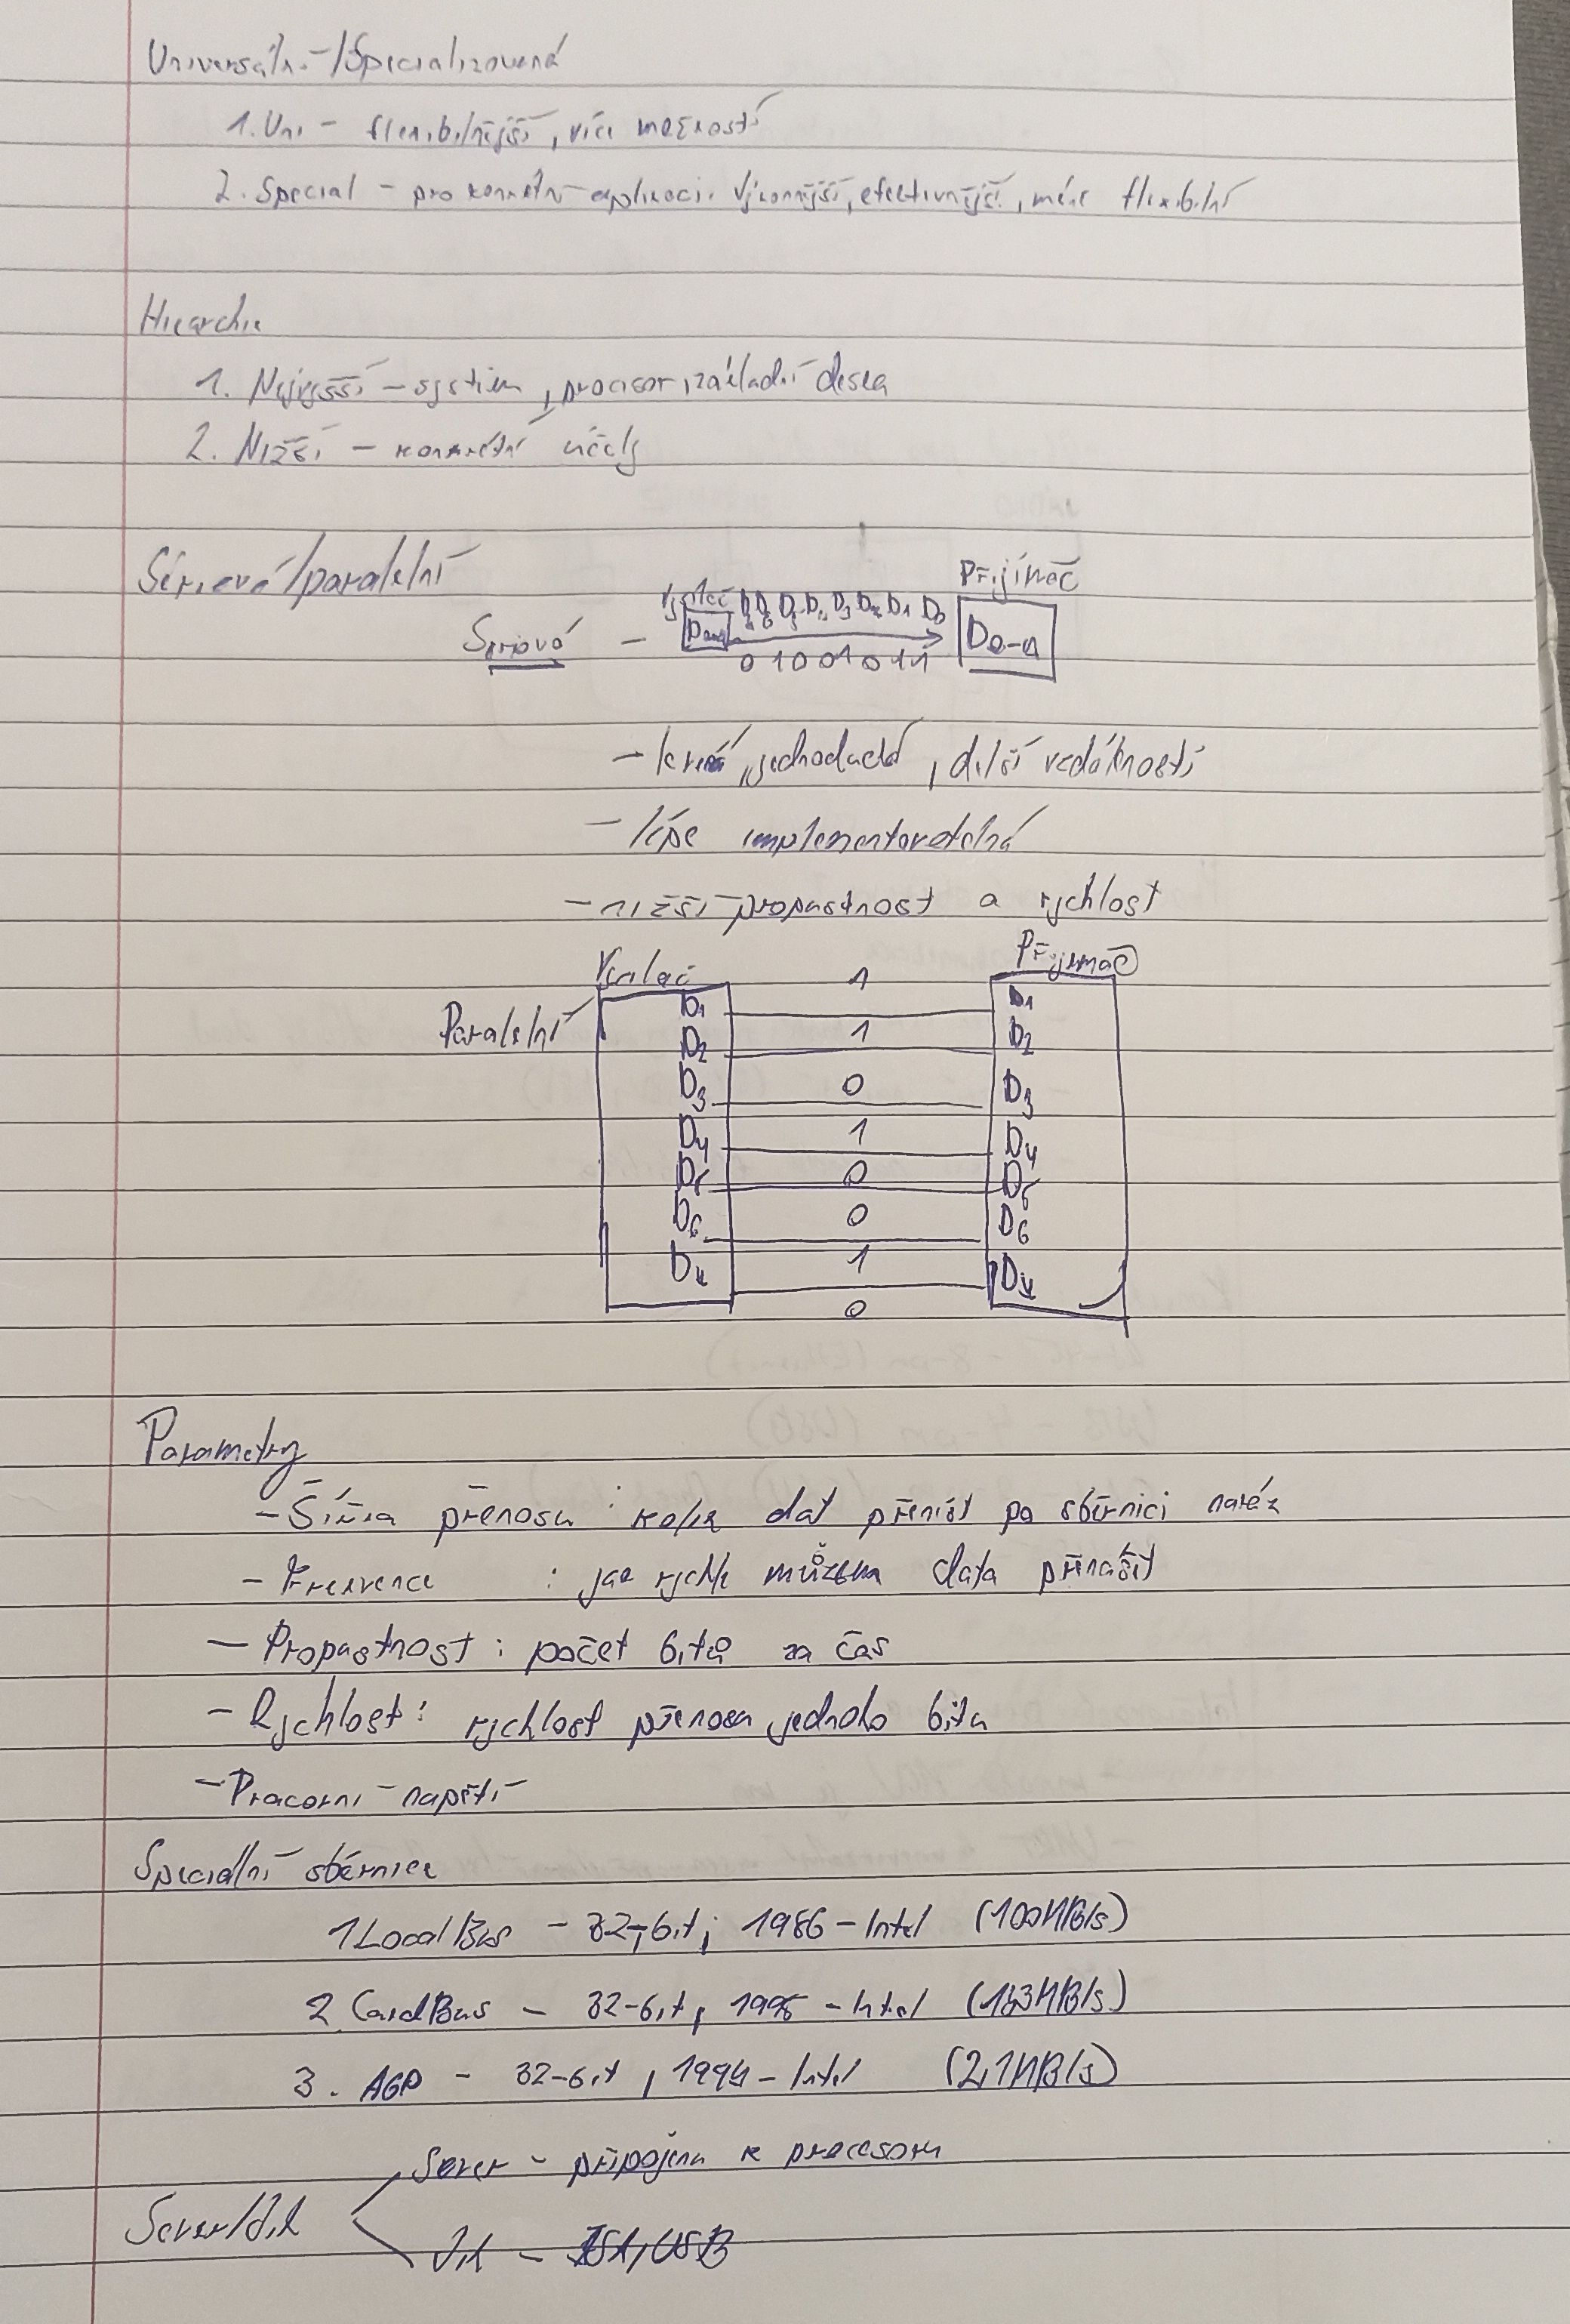 Universální/Specializovaná
1. Uni - flexibilnější, více možností
2. Special - pro konkrétní aplikaci. Výkonnější, efektivnější, méně flexibilní
Hierarchie
1. Nejvyšší - systém, procesor, základní deska
2. Nižší - konkrétní účely
Sériová/paralelní
Přijímač
Vysílač D7 D6 D5 D4 D3 D2 D1 D0
Sériová - D0-n
0 1 0 0 1 0 1 1
- jednoduchá, delší vzdálenosti
- lépe implementovatelná
- nižší propustnost a rychlost
Vysílač 1 Přijímač
Paralelní D1 D1
D2 1 D2
D3 0 D3
D4 1 D4
D5 0 D5
D6 0 D6
1
0
Parametry
- Šířka přenosu : kolik dat přenést po sběrnici naráz
- Frekvence : jak rychle můžeme data přenášit
- Propustnost : počet bitů za čas
- Rychlost : rychlost přenosu jednoho bitu
- Pracovní napětí
Speciální sběrnice
1 Local Bus - 32-bit; 1986 - Intel (100MB/s)
2. CardBus - 32-bit, - Intel
3. AGP - 32-bit, - Intel
Sever - připojena k procesoru
Sever/Jih
Jih - ISA, USB